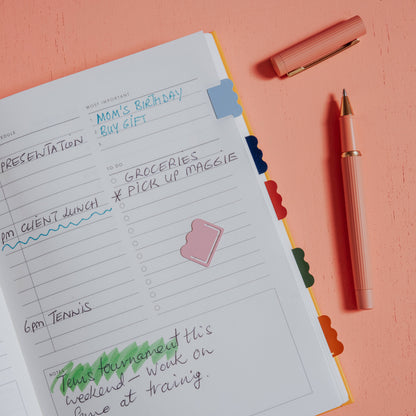 MOST IMPORTANT
MOM'S BIRTHDAY
BUY GIFT
PRESENTATION
TO DO
GROCERIES
* PICK UP MAGGIE
PM CLIENT LUNCH
6PM TENNIS
NOTES
Tennis tournament this
weekend – Work on
at training.